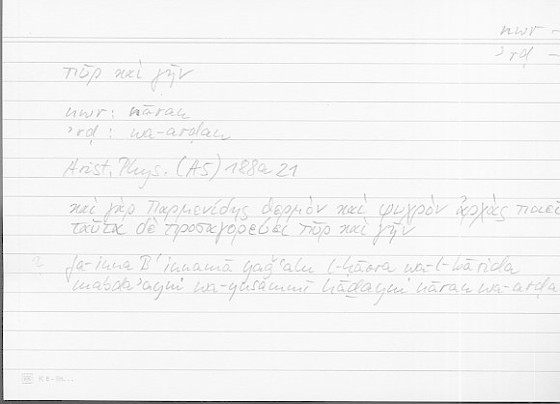 nwr -
ʾrḍ -
πῦρ καὶ γῆν
nwr : nāran
ʾrḍ : wa-arḍan
Arist. Phys. (A5) 188a21
καὶ γὰρ Παρμενίδης θερμὸν καὶ ψυχρὸν ἀρχὰς ποιεῖ
ταῦτα δὲ προσαγορεύει πῦρ καὶ γῆν
fa-inna B innamā yaǧʿalu l-ḥārra wa-l-bārida
mabdaʾayni wa-yusammī hāḏayni nāran wa-arḍa